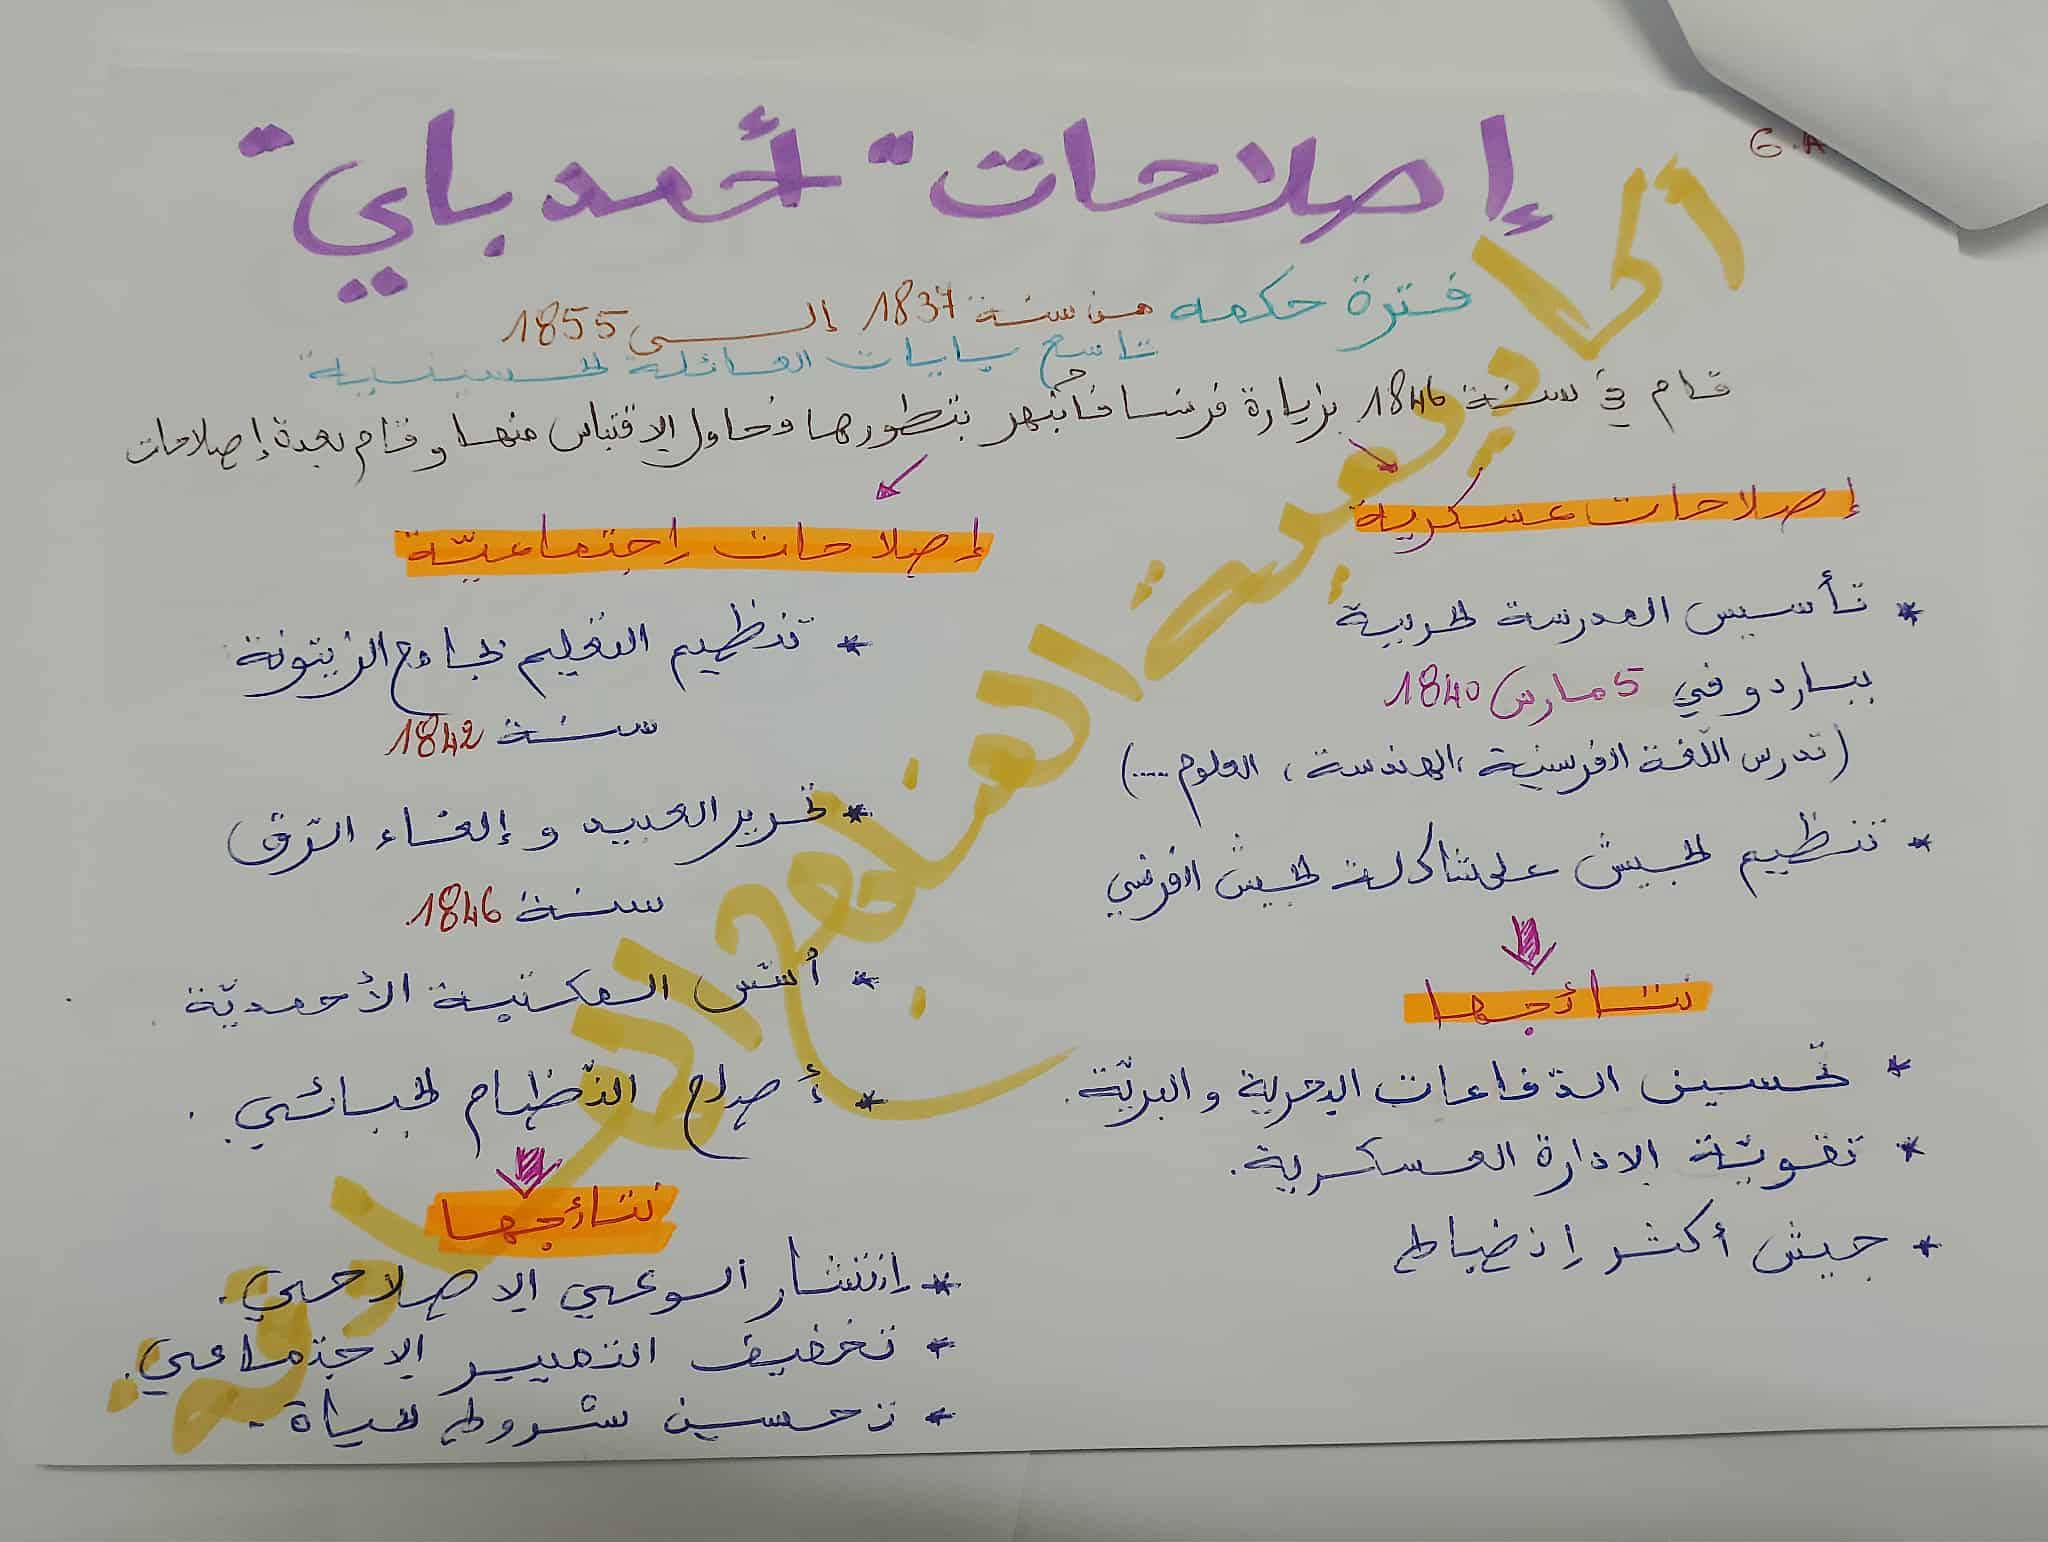 إصلاحات "أحمد باي"
G.A
فترة حكمه من سنة 1837 إلى 1855
تاسع بايات العائلة الحسينية
قام في سنة 1846 بزيارة فرنسا فأنبهر بتطورها وحاول الاقتباس منها و قام بعدة إصلاحات
إصلاحات عسكرية
* تأسيس المدرسة الحربية
بباردو في 5 مارس 1840
(تدرس اللّغة الفرنسية، الهندسة، العلوم .....)
* تنظيم الجيش على شاكلة الجيش الفرنسي
نتائجها
* تحسين الدّفاعات البحرية والبريّة.
* تقويّة الادارة العسكرية.
* جيش أكثر إنضباط
إصلاحات إجتماعيّة
* تنظيم التعليم بجامع الزيتونة
سنة 1842
* تحرير العبيد و إلغاء الرّق
سنة 1846.
* أسّس المكتبة الأحمديّة
* أصلح النّظام الجبائي.
نتائجها
* إنتشار الوعي الاصلاحي.
* تخفيف التمييز الاجتماعي.
* تحسين شروط الحياة.